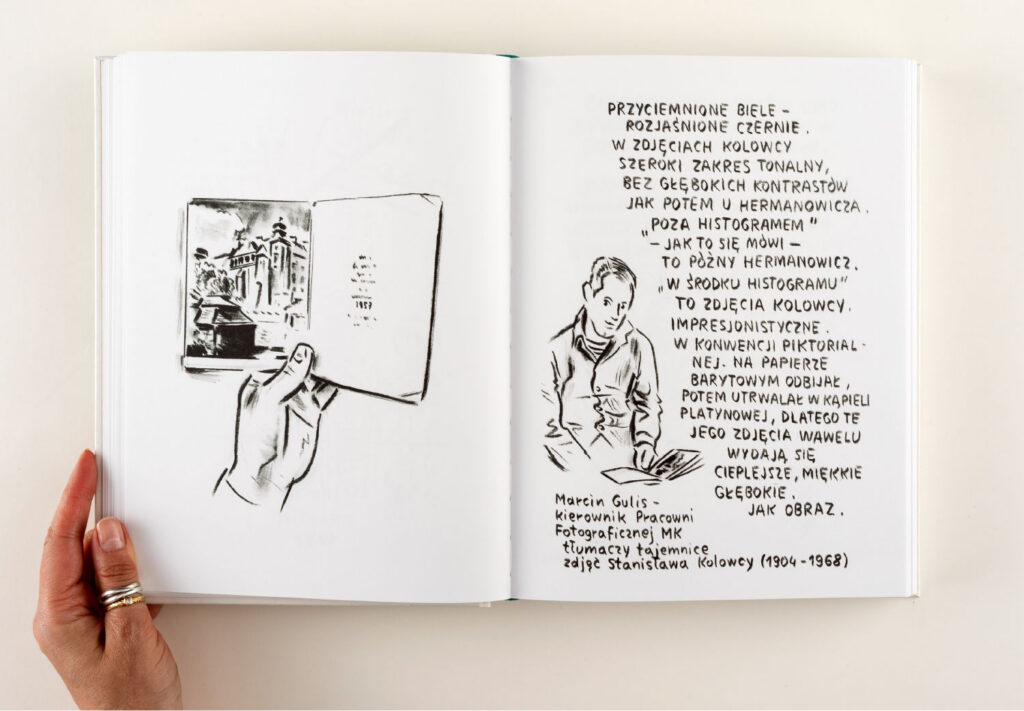 1957
PRZYCIEMNIONE BIELE –
ROZJAŚNIONE CZERNIE.
W ZDJĘCIACH KOLOWCY
SZEROKI ZAKRES TONALNY,
BEZ GŁĘBOKICH KONTRASTÓW
JAK POTEM U HERMANOWICZA.
„POZA HISTOGRAMEM"
– JAK TO SIĘ MÓWI –
TO PÓŹNY HERMANOWICZ.
„W ŚRODKU HISTOGRAMU"
TO ZDJĘCIA KOLOWCY.
IMPRESJONISTYCZNE.
W KONWENCJI PIKTORIAL-
NEJ. NA PAPIERZE
BARYTOWYM ODBIJAŁ,
POTEM UTRWALAŁ W KĄPIELI
PLATYNOWEJ, DLATEGO TE
JEGO ZDJĘCIA WAWELU
WYDAJĄ SIĘ
CIEPLEJSZE, MIĘKKIE
GŁĘBOKIE.
JAK OBRAZ.
Marcin Gulis –
kierownik Pracowni
Fotograficznej MK
tłumaczy tajemnice
zdjęć Stanisława Kolowcy (1904-1968)